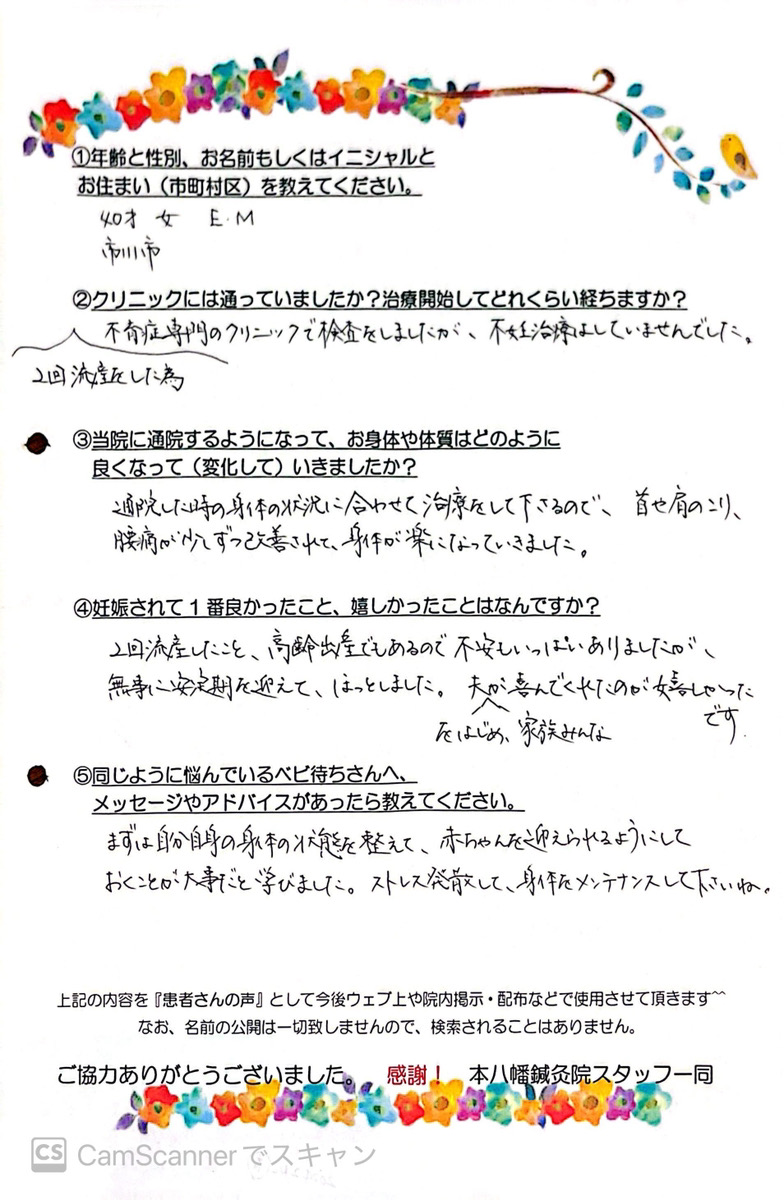 ①年齢と性別、お名前もしくはイニシャルと
お住まい（市町村区）を教えてください。
40才 女 E.M
市川市
②クリニックには通っていましたか？治療開始してどれくらい経ちますか？
不育症専門のクリニックで検査をしましたが、不妊治療はしていませんでした。
2回流産をした為
③当院に通院するようになって、お身体や体質はどのように
良くなって（変化して）いきましたか？
通院した時の身体の状況に合わせて治療をして下さるので、首や肩のこり、
腰痛が少しずつ改善されて、身体が楽になっていきました。
④妊娠されて1番良かったこと、嬉しかったことはなんですか？
2回流産したこと、高齢出産でもあるので不安もいっぱいありましたが、
無事に安定期を迎えて、ほっとしました。夫が喜んでくれたのが嬉しかった
をはじめ、家族みんな
です.
⑤同じように悩んでいるベビ待ちさんへ、
メッセージやアドバイスがあったら教えてください。
まずは自分自身の身体の状態を整えて、赤ちゃんを迎えられるようにして
おくことが大事だと学びました。ストレス発散して、身体をメンテナンスして下さいね。
上記の内容を『患者さんの声』として今後ウェブ上や院内掲示・配布などで使用させて頂きます^^
なお、名前の公開は一切致しませんので、検索されることはありません。
ご協力ありがとうございました。 感謝！ 本八幡鍼灸院スタッフ一同
CS CamScanner でスキャン